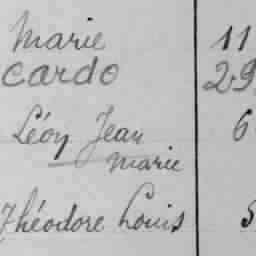 Marie 11
cardo 29
Léon Jean 6
marie
Théodore Louis 5